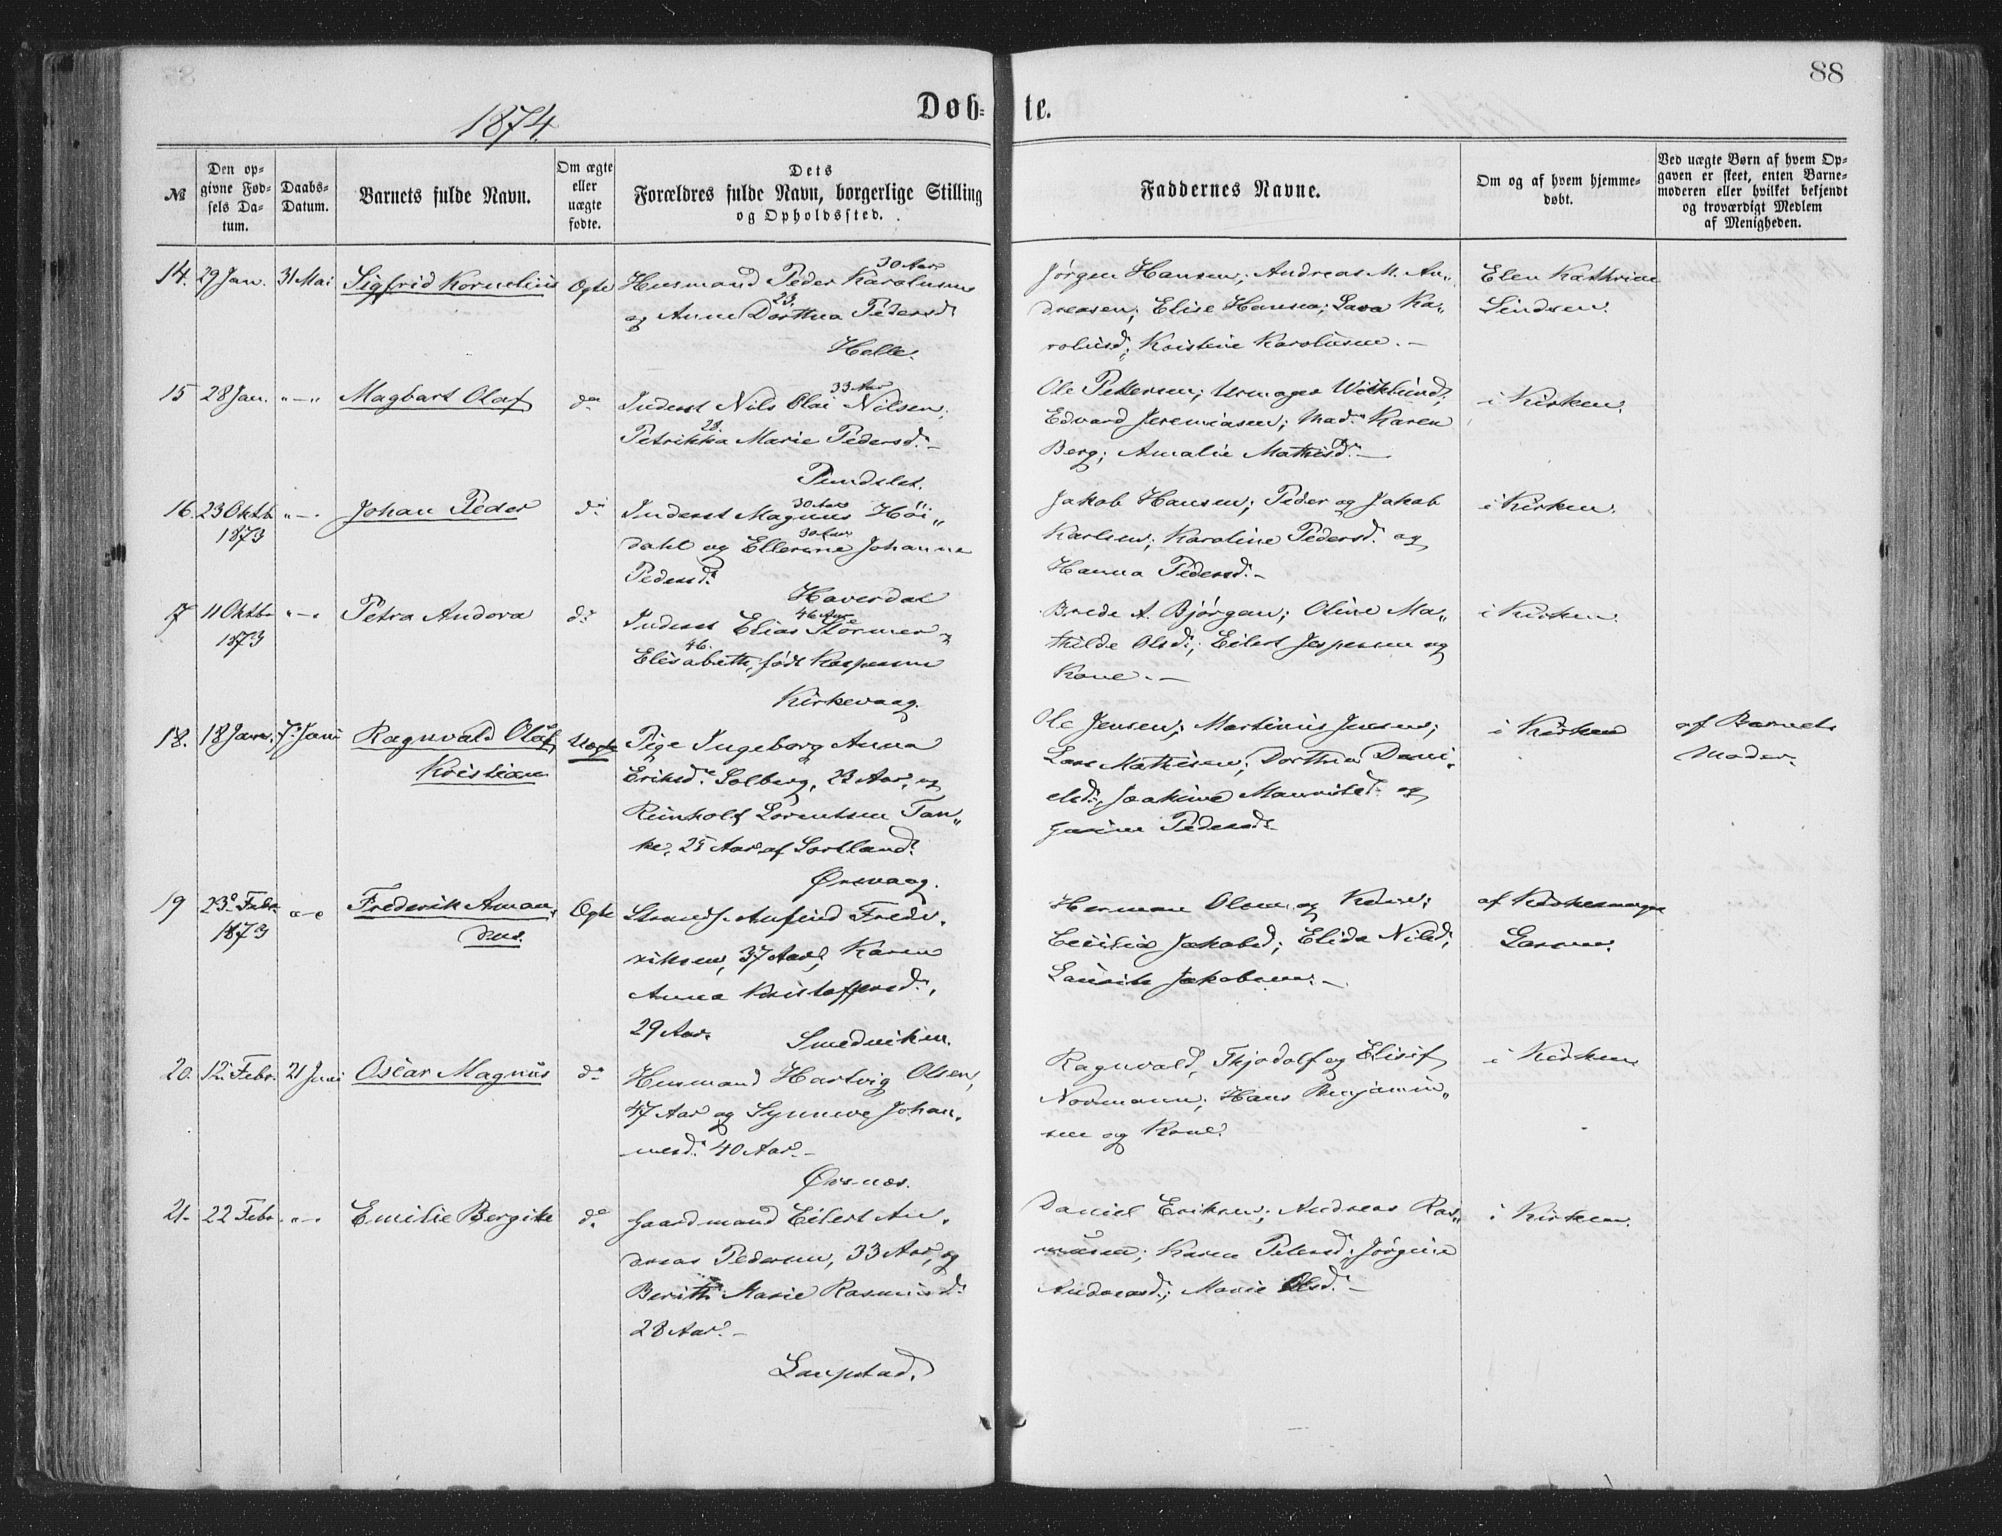 88
1874.
Døb-
te.
№
Den op-
givne Fød-
sels Da-
tum.
Daabs-
Datum.
Barnets fulde Navn.
Om ægte
eller
uægte
fødte.
Dets
Forældres fulde Navn, borgerlige Stilling
og Opholdssted.
Faddernes Navne.
Om og af hvem hjemme-
døbt.
Ved uægte Børn af hvem Op-
gaven er skeet, enten Barne-
moderen eller hvilket bekjendt
og troværdigt Medlem
af Menigheden.
14. 29 Jan. 31 Mai Sigfrid Kornelius Ægte
30 Aar
Husmand Peder Karolusen
23.
og Anne Dorthea Pedersd.
Helle.
Jørgen Hansen; Andreas M. An„
dreasen; Elise Hansen; Lava Ka„
rolusd; Kristine Karolusen.—
Elen Kathrine
Lindsen.
15 28 Jan. „—„ Magbart Olaf do
33 Aar
Inderst Nils Olai Nilsen,
28.
Petrikka Marie Pedersd.—
Pundslet.
Ole Pettersen; Urmager
Edvard Jeremiasen; Mad. Karen
Berg; Amalie Mathisd.—
i Kirken.
16. 23 Oktb. „—„ Johan Peder do
1873
30 Aar
Inderst Magnus Höi„
30 Aar
dahl og Ellerene Johanne
Pedersd.
Haversdal
Jakob Hansen; Peder og Jakob
Karlsen; Karoline Pedersd. og
Hanna Pedersd.—
i Kirken.
17 11 Oktb. „—„ Petra Andora do
1873
46 Aar
Inderst Elias Stormer
46.
Elisabeth, født Kaspersen
Kirkevaag.
Brede A. Bjørgan; Oline Ma„
thilde Olsd.; Eilert Jespersen og
Kone.—
i Kirken.
18. 18 Janr. 7. Juni Ragnvald Olaf Uægte
Kristian
Pige Ingeborg Anna
Eriksd. Solberg, 23 Aar, og
Reinholt Lorentsen Tan„
ke, 25 Aar af Sortland.
Ørsvaag.
Ole Jensen; Martinus Jensen;
Lars Mathisen; Dorthea Dani„
elsd., Joakime og
Pedersd.
i Kirken
af Barnets
Moder.
19 23 Febr. „—„ Frederik Aman„ Ægte
1873
dus.
Anfind Fredr„
riksen, 37 Aar, Karen
Anna Kristoffersd.,
29 Aar. Smedviken.
Herman Olsen og Kone;
Cecilia Jakobsd; Elida Nilsd;
Laurits Jakobsen.—
af Kirkesanger
Larsen.
20. 12. Febr. 21 Juni Oscar Magnus do
Husmand Hartvig Olsen,
47 Aar og Synneve Johan„
nesd. 40 Aar.—
Ørsnæs.
Ragnvald, Thjodolf og Elisif
Normann; Hans Benjamin„
sen og Kone.
i Kirken
21. 22 Febr. „—„ Emilie Bergite do
Gaardmand Eilert An„
dreas Pedersen, 33 Aar, og
Berith Marie Rasmusd.
28 Aar.—
Laupstad.
Daniel Eriksen; Andreas Ras„
musen; Karen Petersd; Jørgine
Andreasd.; Marie Olsd.—
i Kirken.